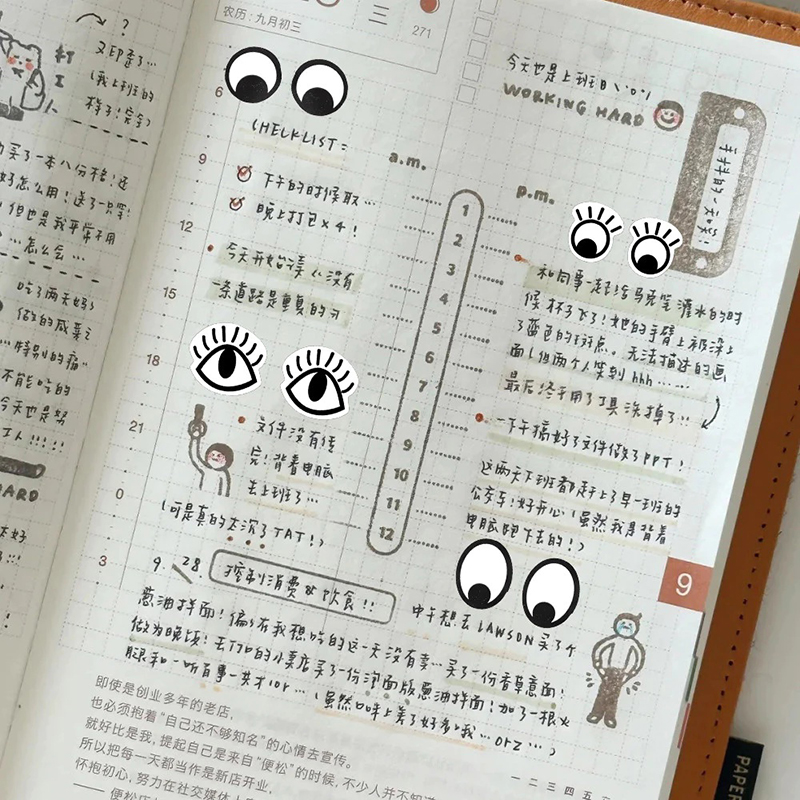 ?
又印歪了…
(我上班的
样子!完全)
买了一本八份格!还
好怎么用!送了一只笔!
但也是我平常不用
…怎么会…
吃了两天好)
做的咸菜之
…特别的痛"
不能吃的
今天也是努
工人!!!!
HARD
农历:九月初三
三
271
6
9
12
15
18
21
0
3
CHECKLIST:
下午的时候取…
晚上打包×4!
今天开始读《没有
一条道路是重复的》
文件没有传
完!背着电脑
去上班了…
(可是真的太沉了TAT!)
a.m.
p.m.
1
2
3
4
5
6
7
8
9
10
11
12
今天也是上班日\('o')/
WORKING HARD
手抖的一天呢!
和同事一起给马克笔灌水的时
候杯子飞了!她的手臂上被染上
了蓝色的斑点。无法描述的画
面!但两个人笑到hhh……
最后终于用工具洗掉了!!
一下午搞好了文件做了PPT!
这两天下班都赶上了早一班的
公交车!好开心!(虽然我是背着
电脑跑下去的!)
9
9.28.
控制消费&饮食!!
中午想去LAWSON买了个
葱油拌面!偏偏在我想吃的这一天没有卖…买了一份香草意面!
做为晚饭!去了7D的小卖店买了一份泡面版葱油拌面!加了一根火
腿和一听百事一共才10r…(虽然口味上差了好多我…orz…)
即使是创业多年的老店,
也必须抱着"自己还不够知名"的心情去宣传。
就好比是我,提起自己是来自"便松"的时候,不少人并不知道
所以把每一天都当作是新店开业,
怀抱初心,努力在社交媒体上
—— 便松
一 二 三 四 五
PAPER